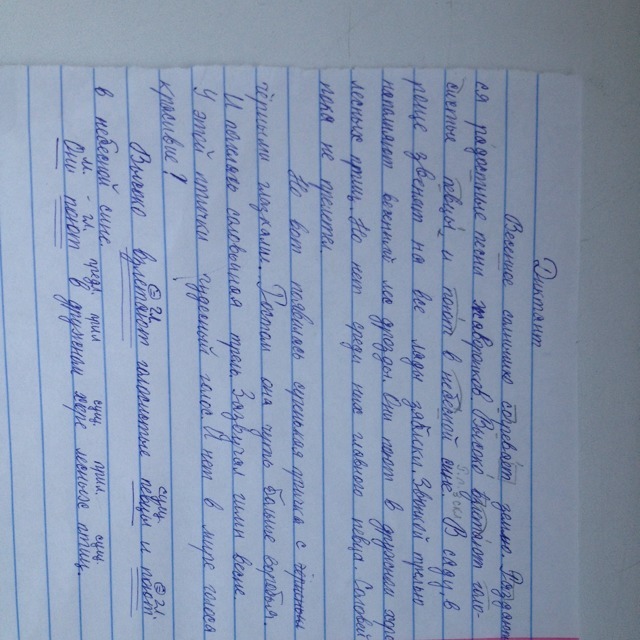 Диктант
Весеннее солнышко согревает землю. Раздают
ся радостные песни жаворонков. Высоко взлетают
певцы и поют в небесной сини. В саду, в
роще звенят на все лады зяблики. Звонкой трелью
наполняют весенний лес дрозды. Они поют в дружном хоре
лесных птиц. Но нет среди них главного певца. Соловей
пока не прилетел.
Но вот появилась серенькая птичка с
тёмными глазками. Ростом она чуть больше воробья.
И полилась соловьиная трель. Зазвучал гимн весне.
У этой птички чудесный голос. И нет в мире голоса
красивее!
сущ. гл.
Высоко взлетают голосистые певцы и поют
в небесной сини.
м. - гл. пред. прил сущ. прил. сущ
Они поют в дружном хоре лесных птиц.